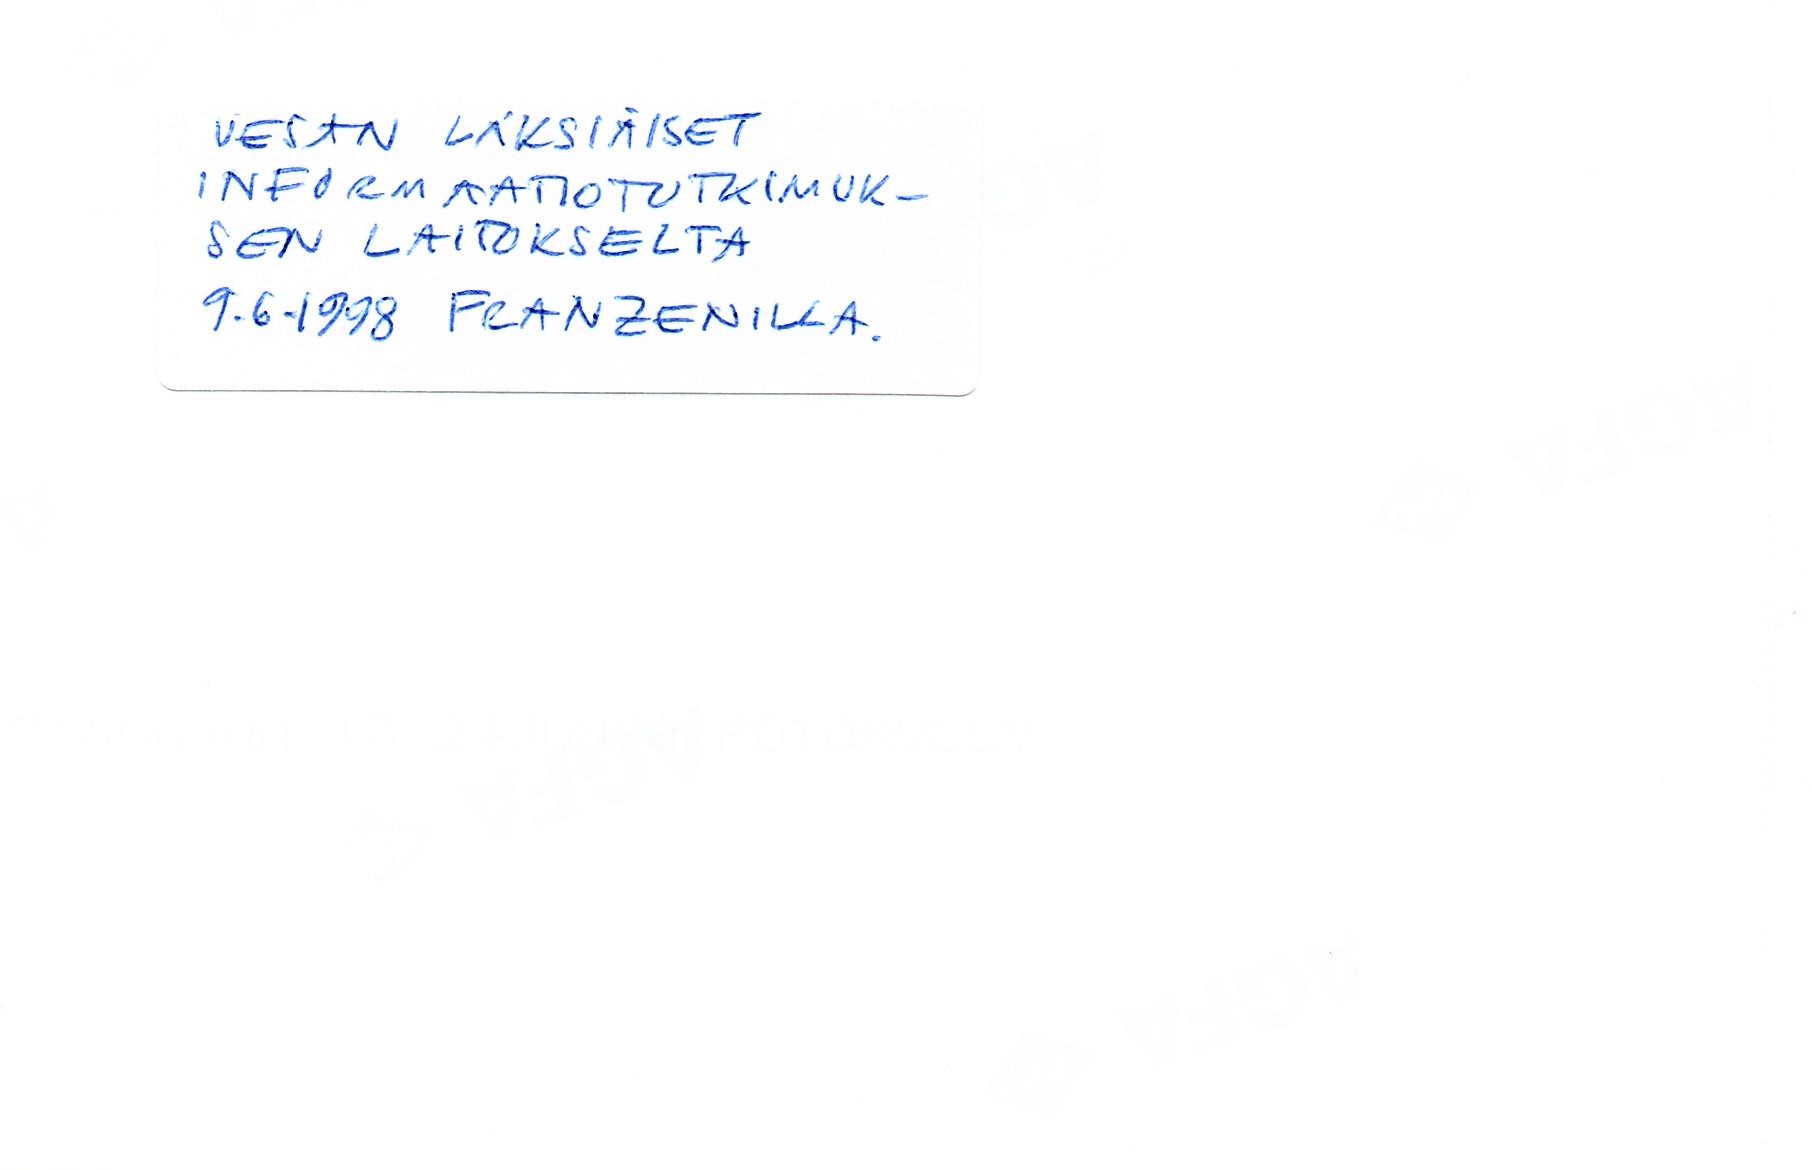 VESAN LÄKSIÄISET
INFORMAATIOTUTKIMUK-
SEN LAITOKSELTA
9.6.1998 FRANZENILLA.